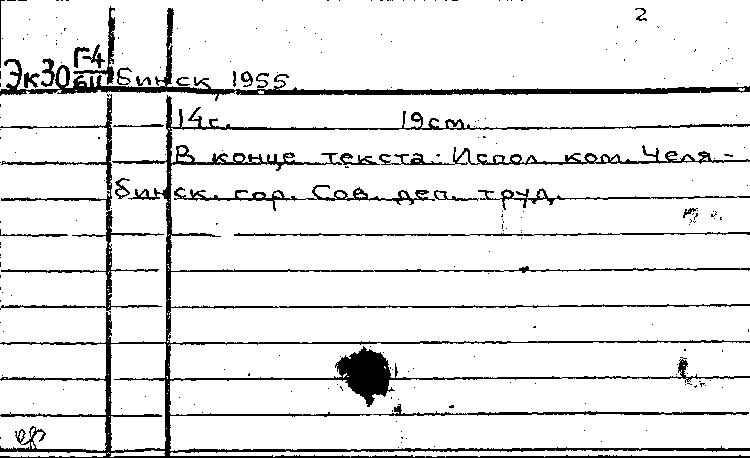 2
Эк30 Г-4
611 бинск, 1955.
14с. 19см.
В конце текста: Испол. ком. Челя-
бинск. гор. Сов. деп. труд.